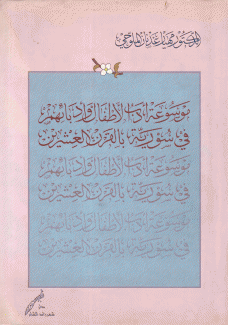 الدكتور مهيار عدنان الملوحي
موسوعة أدب الأطفال وأدبائهم
في سورية بالقرن العشرين
موسوعة أدب الأطفال وأدبائهم
في سورية بالقرن العشرين
موسوعة أدب الأطفال وأدبائهم
في سورية بالقرن العشرين